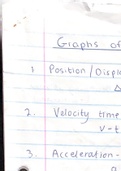 Graphs of
1 Position/Displ
2. Velocity time
v-t
3. Acceleration-